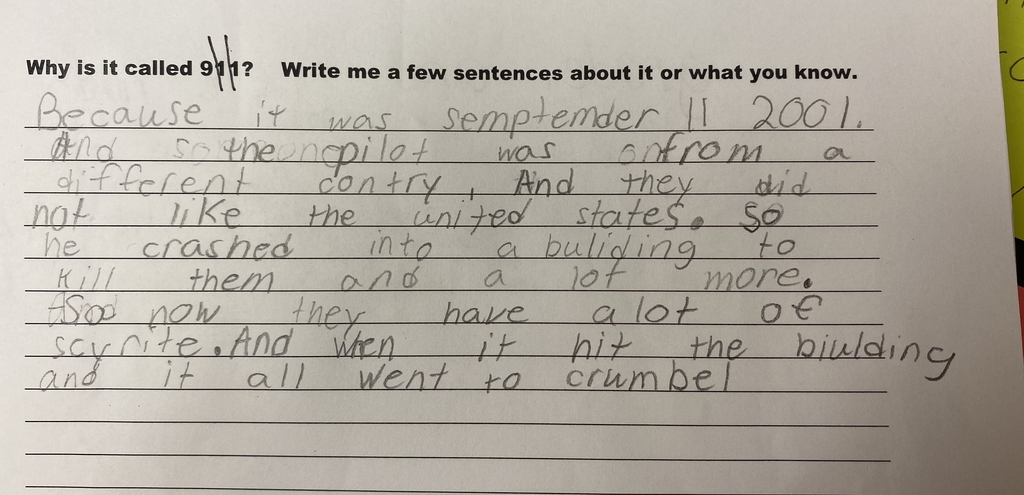 Why is it called 911? Write me a few sentences about it or what you know.
Because it was semptemder 11 2001.
And so the pilot was from a
different contry, And they did
not like the united states. so
he crashed into a buliding to
kill them and a lot more.
Soo now they have a lot of
scyrite. And when it hit the biulding
and it all went to crumbel